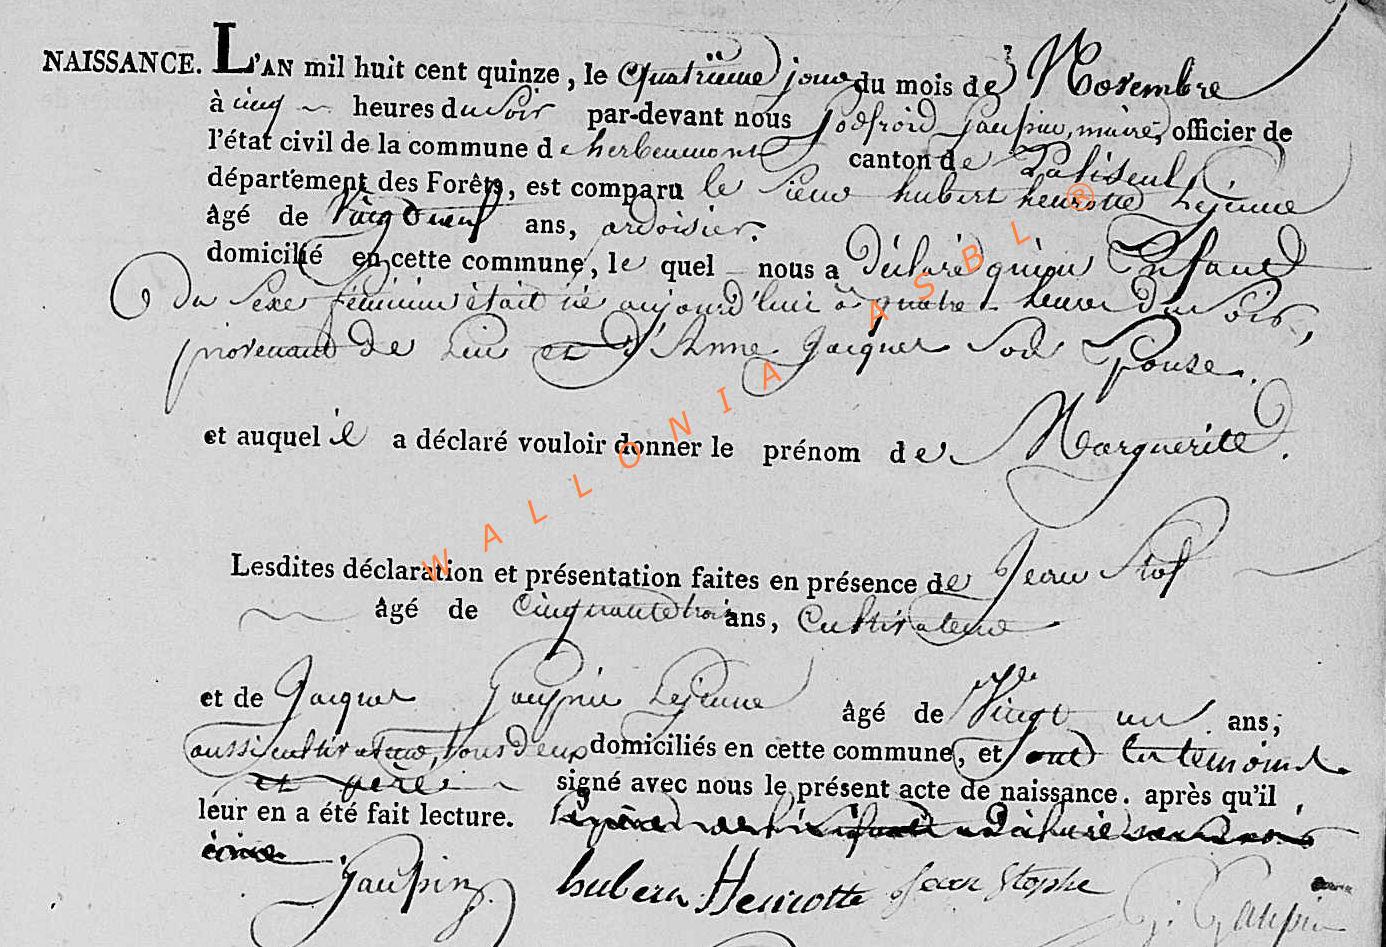 NAISSANCE. L'AN mil huit cent quinze, le quatrième jour du mois de Novembre
à cinq heures du soir par-devant nous Godfroid Gaupin, maire, officier de
l'état civil de la commune de herbeumont canton de Paliseul
département des Forêts, est comparu le Sieur hubert henrotte Lejeune
âgé de Vingt neuf ans, ardoisier.
domicilié en cette commune, le quel nous a Déclaré qu'un Enfant
Du Sexe féminin était né aujourd'hui à quatre heures du Soir,
provenant de Lui et d'Anne Jacques Son Epouse.
et auquel il a déclaré vouloir donner le prénom de Marguerite.
Lesdites déclaration et présentation faites en présence de Jean Stof
âgé de Cinquante trois ans, Cultivateur
et de Jacques Gaupin Lejeune âgé de Vingt un ans,
aussi cultivateur, tous deux domiciliés en cette commune, et ont les témoins
et père signé avec nous le présent acte de naissance. après qu'il
leur en a été fait lecture.
Gaupin hubert Henrotte Jean Stophe G. Gaupin
WALLONIA ASBL ®